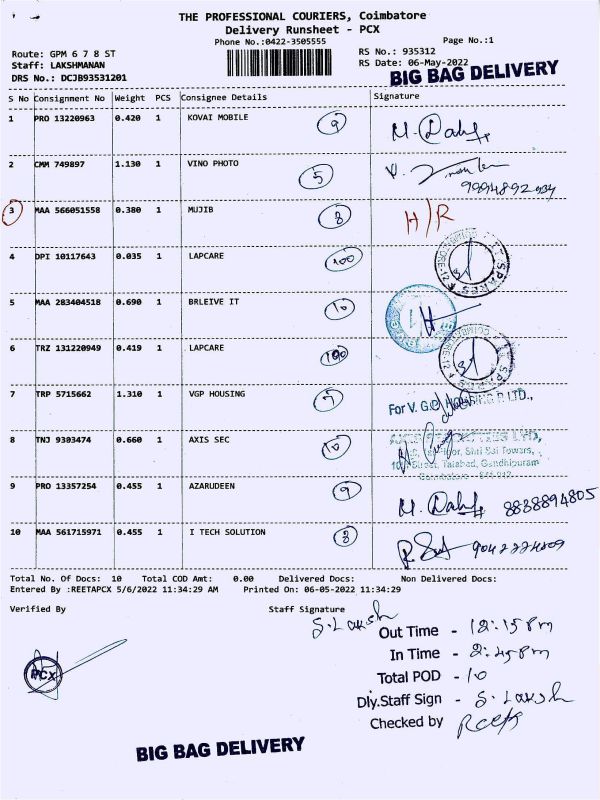 THE PROFESSIONAL COURIERS, Coimbatore
Delivery Runsheet - PCX
Phone No.:0422-3505555
Page No.:1
Route: GPM 6 7 8 ST
RS No.: 935312
Staff: LAKSHMANAN
RS Date: 06-May-2022
DRS No.: DCJB93531201
BIG BAG DELIVERY
S No Consignment No Weight PCS Consignee Details Signature
1 PRO 13220963 0.420 1 KOVAI MOBILE 9
2 CMM 749897 1.130 1 VINO PHOTO 5
3 MAA 566051558 0.380 1 MUJIB 8 H/R
4 DPI 10117643 0.035 1 LAPCARE 100
5 MAA 283404518 0.690 1 BRLEIVE IT 10
6 TRZ 131220949 0.419 1 LAPCARE 100
7 TRP 5715662 1.310 1 VGP HOUSING 7 For V.G.P. HOUSING P. LTD.,
8 TNJ 9303474 0.660 1 AXIS SEC 10
Floor, Shri Sai Towers,
Tatabad, Gandhipuram
9 PRO 13357254 0.455 1 AZARUDEEN 9 8838894805
10 MAA 561715971 0.455 1 I TECH SOLUTION
Total No. Of Docs: 10 Total COD Amt: 0.00 Delivered Docs: Non Delivered Docs:
Entered By :REETAPCX 5/6/2022 11:34:29 AM Printed On: 06-05-2022 11:34:29
Verified By Staff Signature
S. Laksh
Out Time - 12:15 Pm
In Time - 2:45 Pm
Total POD - 10
PCX
Dly.Staff Sign - S. Laksh
Checked by Reeta
BIG BAG DELIVERY